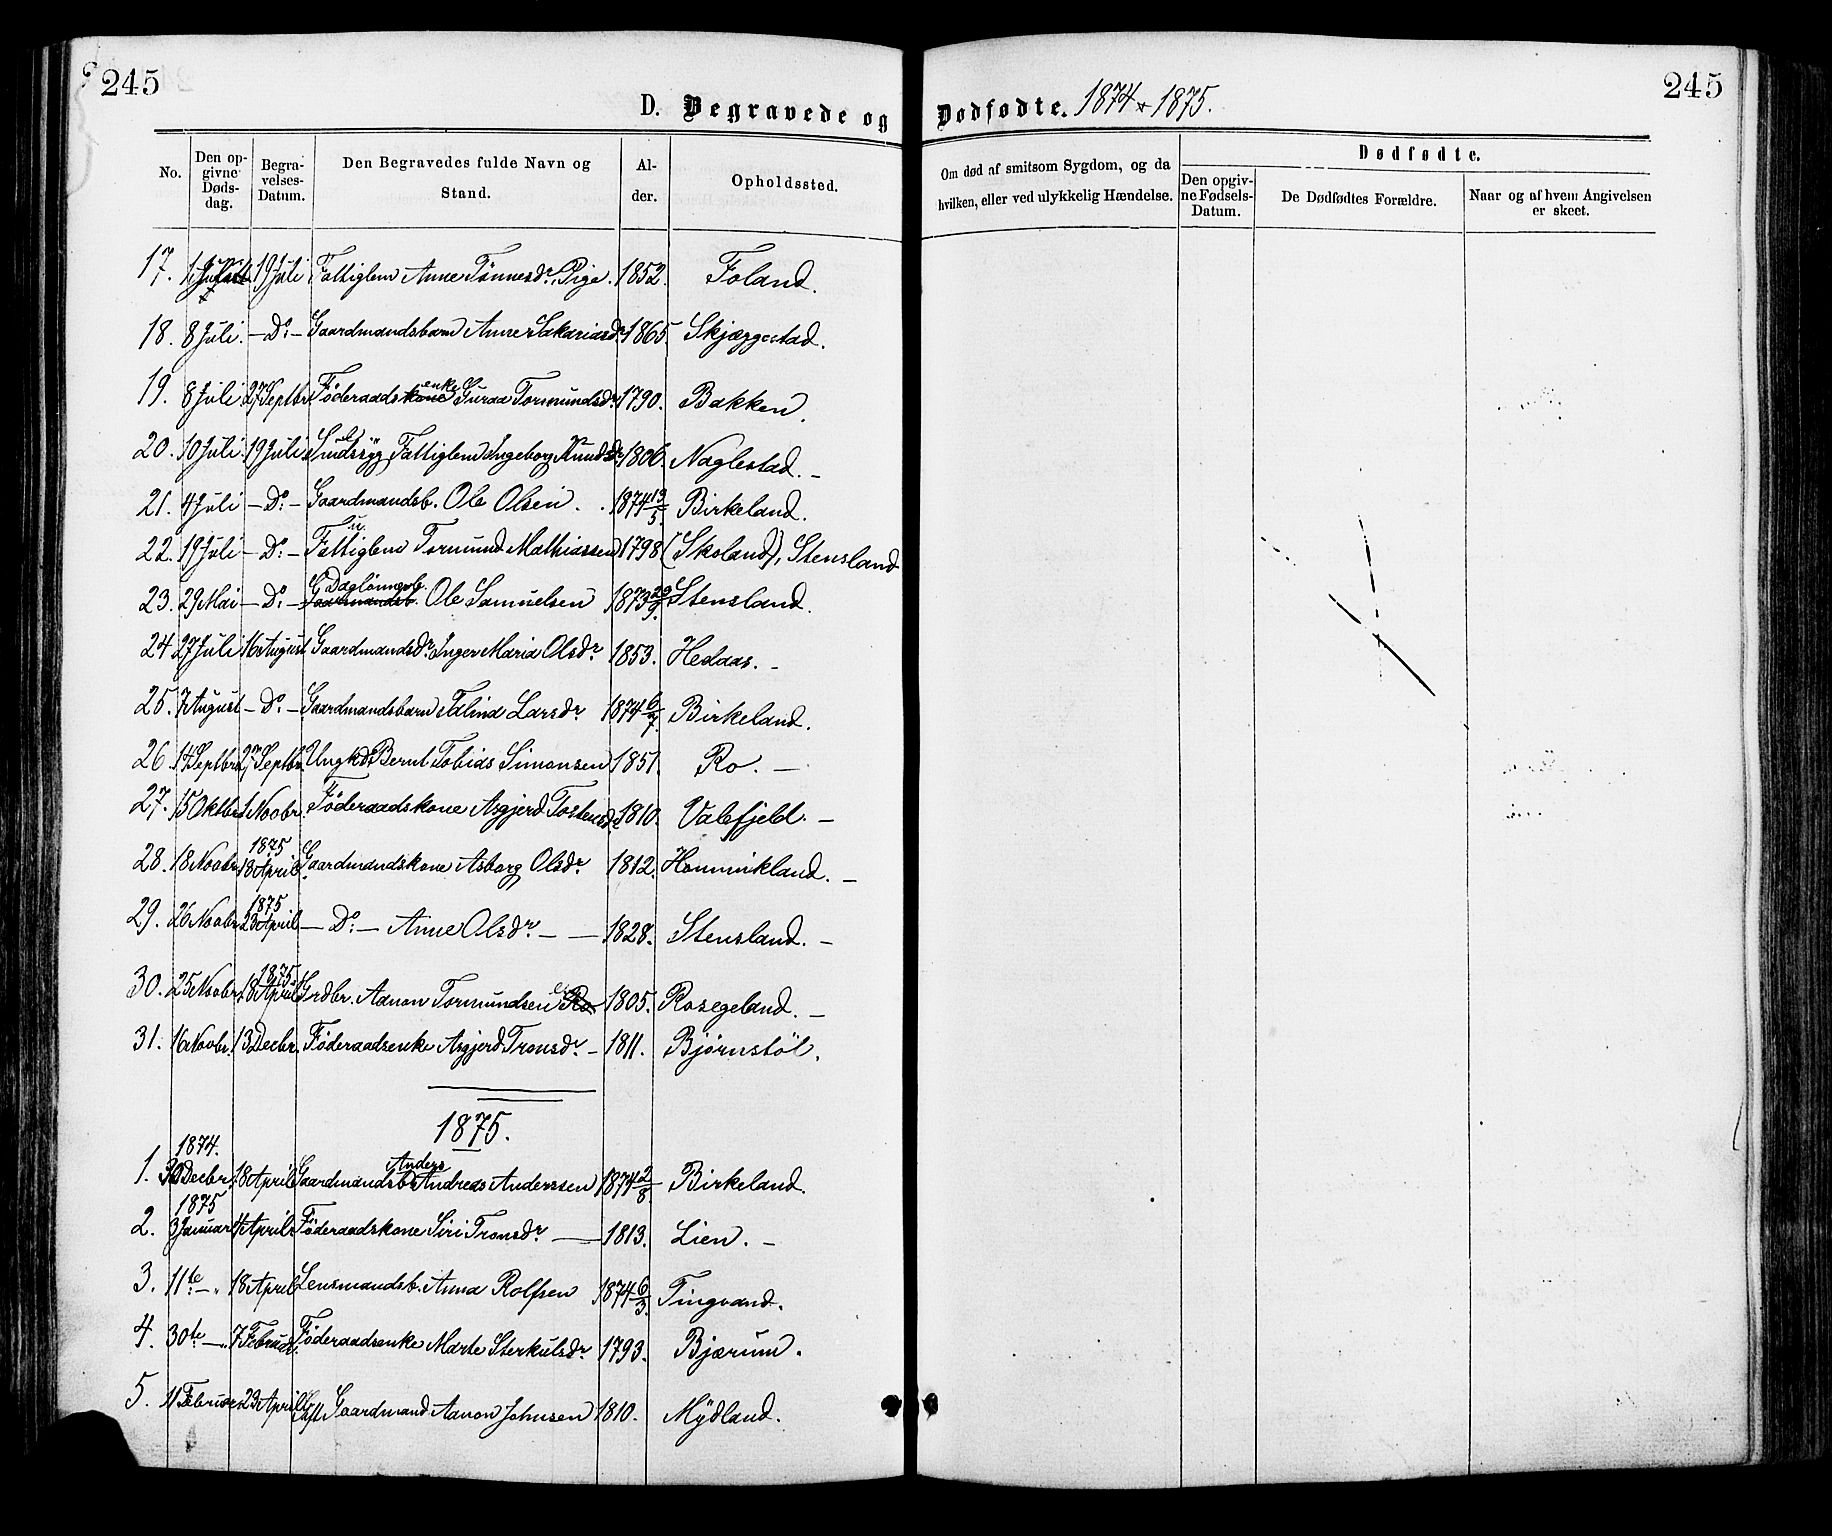 245
245
D. Begravede og Dødfødte. 1874 & 1875.
No.
Den opgivne Dødsdag.
Begravelses-Datum.
Den Begravedes fulde Navn og Stand.
Alder.
Opholdssted.
Om død af smitsom Sygdom, og da hvilken, eller ved ulykkelig Hændelse.
Dødfødte.
Den opgivne Fødsels-Datum.
De Dødfødtes Forældre.
Naar og af hvem Angivelsen er skeet.
17. 19 Juli Fattiglem Anne Tønnesdr, Pige. 1852. Foland.
18. 8 Juli. – Do: – Gaardmandsbarn Anne Sakariasdr 1865. Skjæggestad.
19. 8 Juli 27 Septbr Føderaadskone enke Guraa Tormundsdr 1790. Bakken.
20. 10 Juli. 19 Juli Sindssyg Fattiglem Ingeborg Knudsdr 1806. Naglestad. –
21. 4 Juli – Do: – Gaardmandsb. Ole Olsen. 1874 13/5. Birkeland.
22. 19 Juli – Do: – Fattiglem Tormund Mathiassen 1798 (Skoland), Stensland
23. 29 Mai – Do: – Gaardmandsb. Daglönnerb. Ole Samuelsen 1873 29/9. Stensland.
24 27 Juli 16 August Gaardmandsdr. Inger Maria Olsdr 1853. Hedaas. –
25. 7 August – Do: – Gaardmandsbarn Talina Larsdr 1874 6/7. Birkeland.
26. 14 Septbr 27 Septbr. Ungkd. Bernt Tobias Simonsen 1851. Ro. –
27. 15 Oktbr 1 Novbr. Føderaadskone Asgjerd Tostensdr 1810. Valefjeld. –
1875
28. 18 Novbr. 13 April Gaardmandskone Asborg Olsdr 1812. Hommikland. –
1875
29. 26 Novbr. 23 April – Do: – Anne Olsdr – – 1828. Stensland. –
1875
30. 25 Novbr. 18 April Grdbr. Aanon Tormundsen 1805. Rosegeland. –
31. 16 Novbr. 13 Decbr. Føderaadsenke Asgjerd Tronsdr – 1811. Bjørnstöl.
1875.
1874.
1. 30 Decbr. 18 April Gaardmandsbr. Andreas Anders Anderssen 1874 2/8. Birkeland.
1875
2. 3 Januar 4 April Føderaadskone Siri Tronsdr – 1813. Lien. –
3. 11te – „ 18 April Lensmandsb. Anna Rolfsen 1874 6/3. Tingvand.
4. 30te – „ 7 Februar. Føderaadsenke Marte Sterkulsdr 1793. Bjærum.
5. 11 Februar 23 April Gaardmand Aanon Johnsen 1810. Mydland.